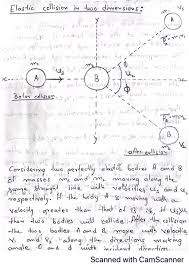 Elastic collision in two dimensions:
y
m₁
A
U₁
m₁
A
U₂
m₂
B
θ
φ
x
x
Before collision
m₂
B
y
After collision
Considering two perfectly elastic bodies A and B
of masses m₁ and m₂ moving along the
same straight line with velocities U₁ and U₂
respectively. If the body A is moving with a
velocity greater than that of B
then two bodies will collide. After the collision
the two bodies A and B move with velocities
V₁ and V₂ along the directions making
angle θ and φ with incident direction.
Scanned with CamScanner